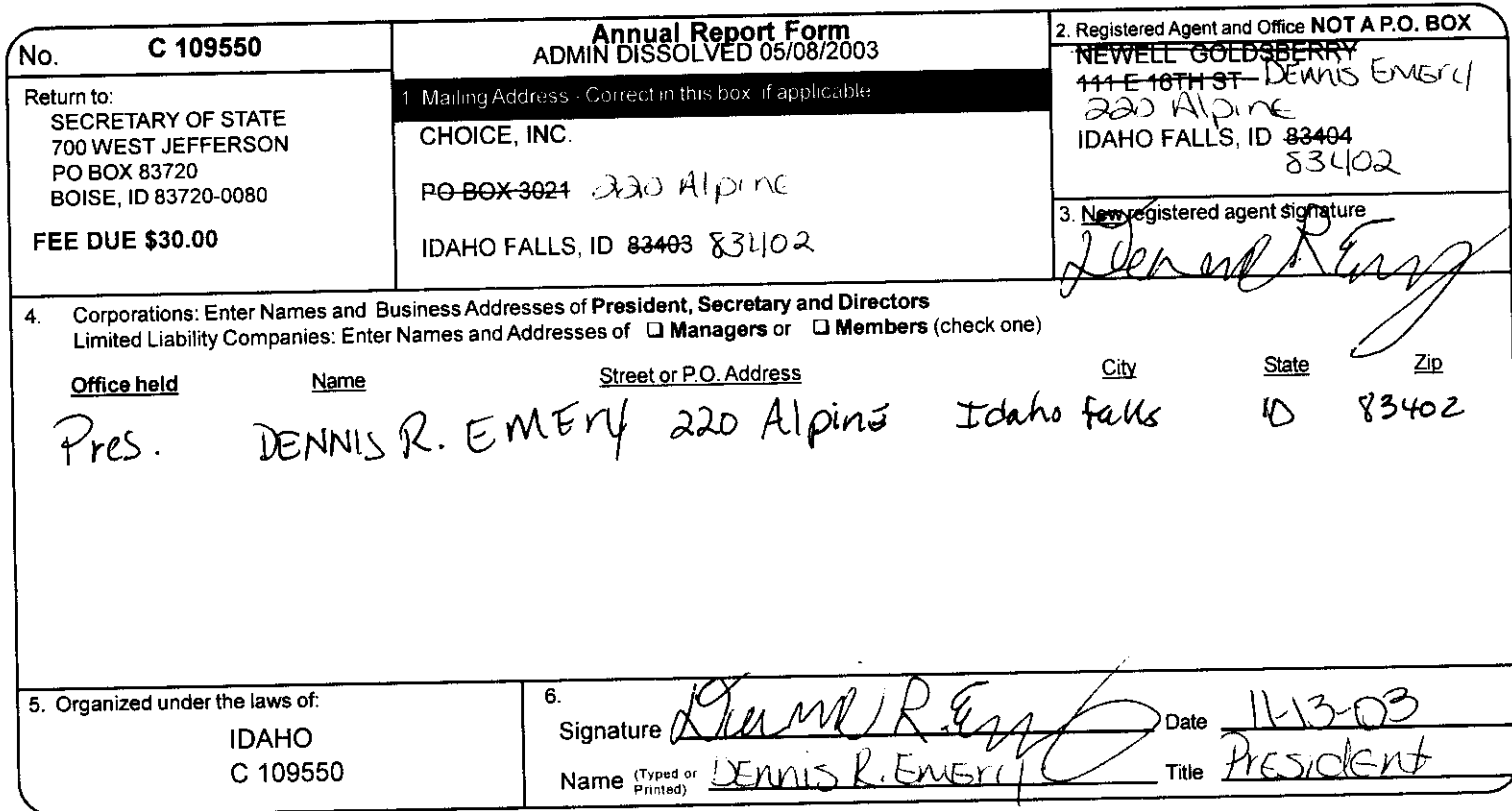 No. C 109550
Annual Report Form
ADMIN DISSOLVED 05/08/2003
Return to:
SECRETARY OF STATE
700 WEST JEFFERSON
PO BOX 83720
BOISE, ID 83720-0080
FEE DUE $30.00
1 Mailing Address - Correct in this box if applicable
CHOICE, INC.
PO BOX 3021 220 Alpine
IDAHO FALLS, ID 83403 83402
2. Registered Agent and Office NOT A P.O. BOX
NEWELL GOLDSBERRY
111 E 16TH ST DENNIS EMERY
220 Alpine
IDAHO FALLS, ID 83404
83402
3. New registered agent signature
Dennis R. Emery
4. Corporations: Enter Names and Business Addresses of President, Secretary and Directors
Limited Liability Companies: Enter Names and Addresses of ❑ Managers or ❑ Members (check one)
Office held Name Street or P.O. Address City State Zip
Pres. DENNIS R. EMERY 220 Alpine Idaho Falls ID 83402
5. Organized under the laws of:
IDAHO
C 109550
6.
Signature Dennis R. Emery Date 11-13-03
Name (Typed or Printed) DENNIS R. EMERY Title President